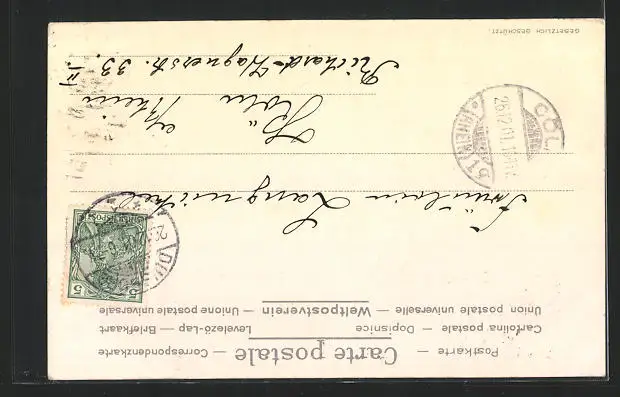 Postkarte — Carte postale — Correspondenzkarte
Cartolina postale — Dopisnice
Levelező-Lap — Briefkaart
Union postale universelle — Weltpostverein — Unione postale universale
5
REICHSPOST
Fräulein
Köln a/Rhein
Richard-Wagnerstr. 33.
II.
26.12.01
GESETZLICH GESCHÜTZT.